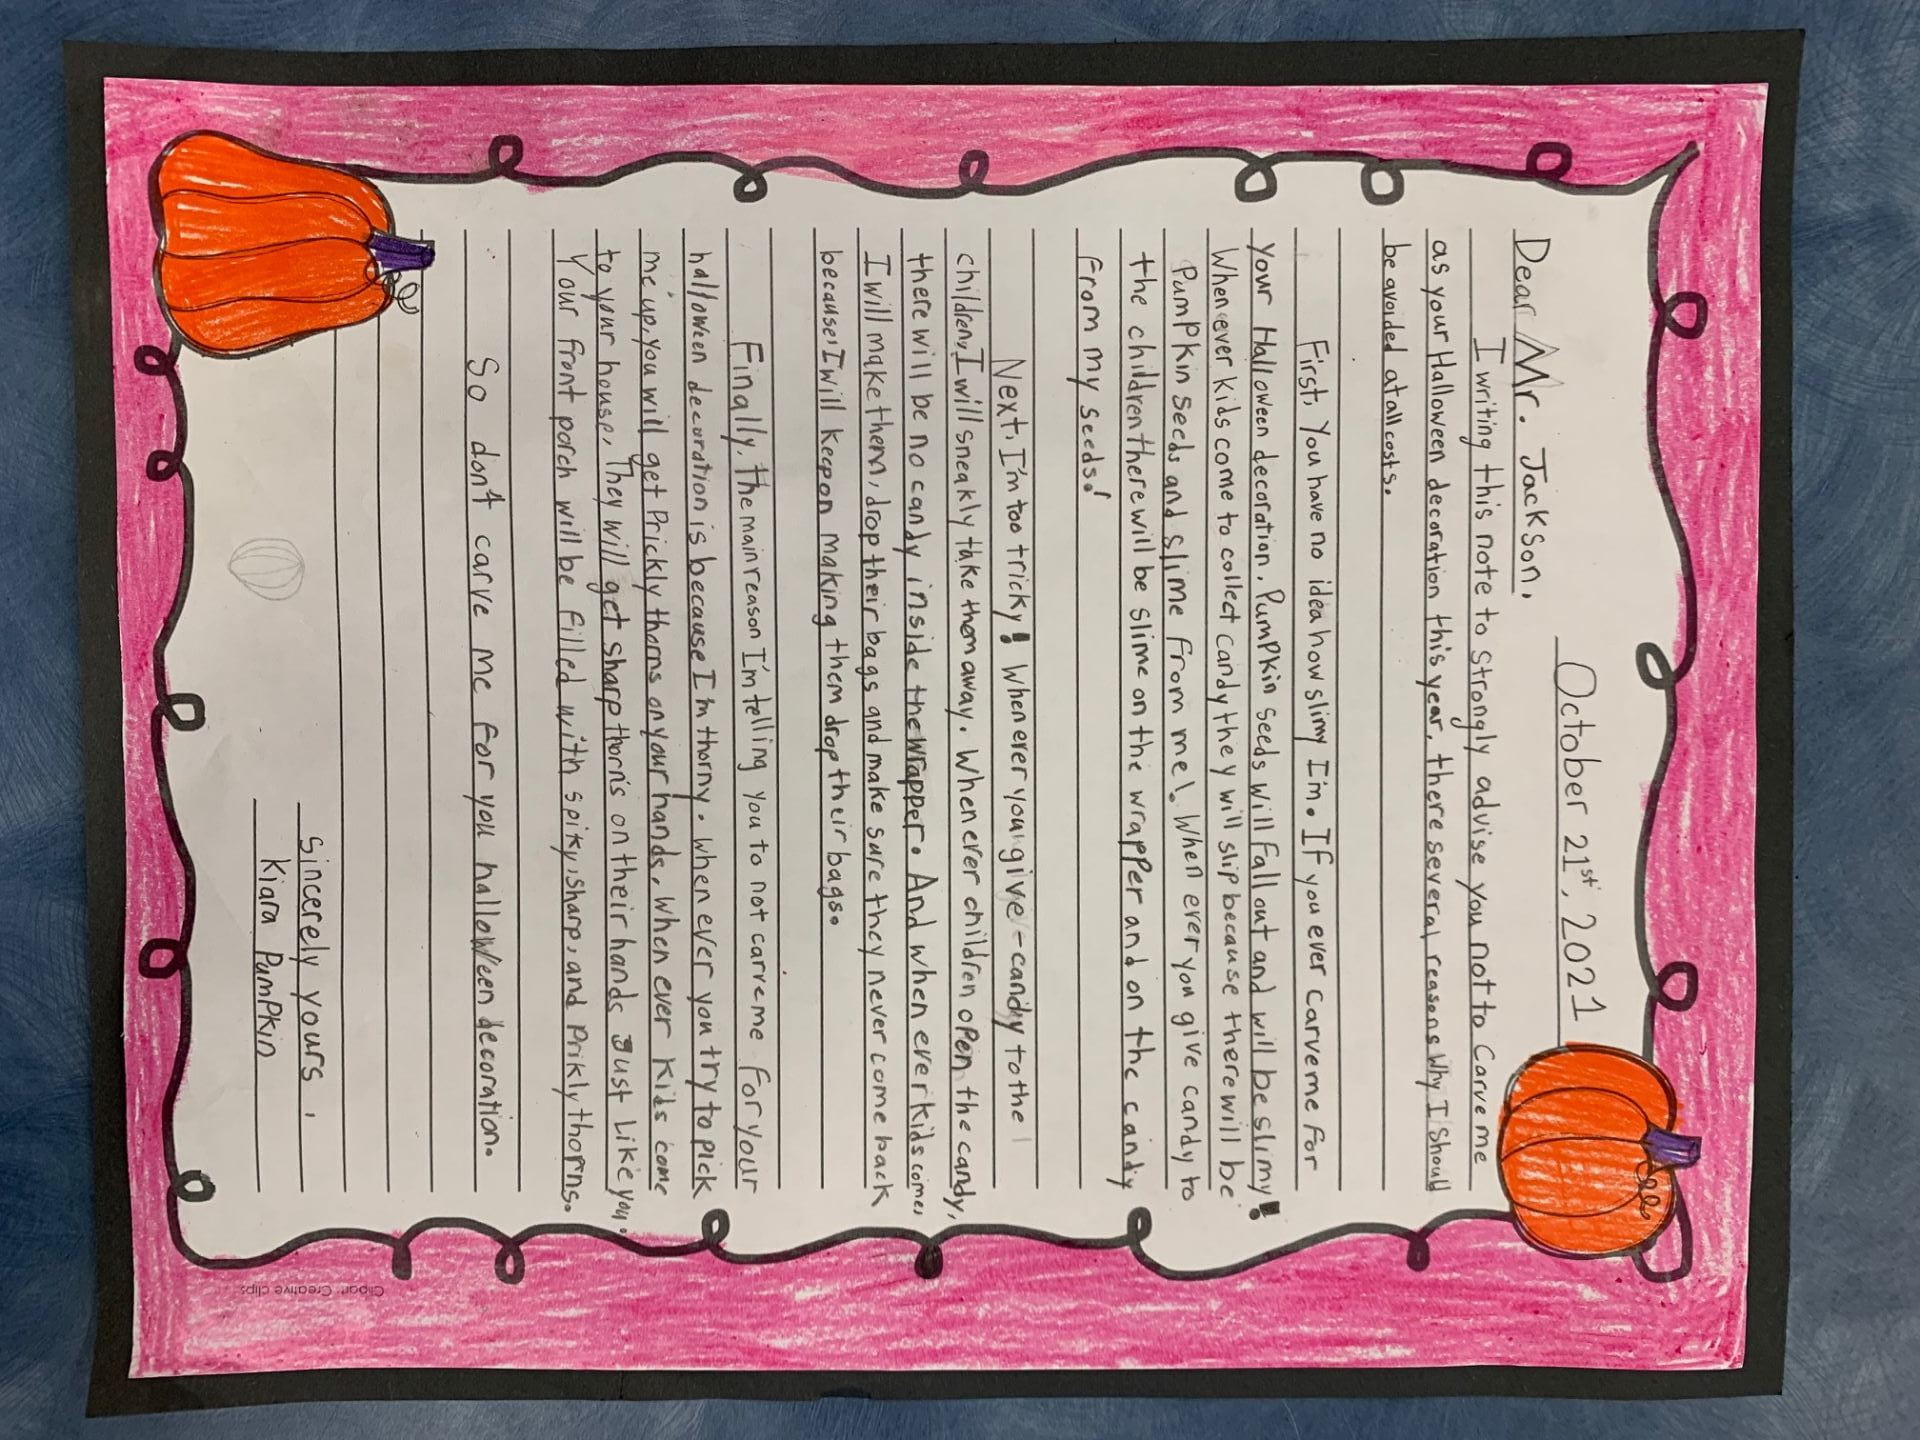 October 21st, 2021
Dear Mr. Jackson,
I writing this note to strongly advise you not to carve me
as your Halloween decoration this year, there several reasons why I should
be avoided at all costs.
First, You have no idea how slimy I'm. If you ever carve me for
your Halloween decoration, Pumpkin seeds will fall out and will be slimy!
When ever kids come to collect candy they will slip because there will be
Pumpkin seeds and slime from me! When ever you give candy to
the children there will be slime on the wrapper and on the candy
from my seeds!
Next, I'm too tricky! When ever you give-candy to the
children, I will sneakly take them away. When ever children open the candy,
there will be no candy inside the wrapper. And when ever kids come,
I will make them, drop their bags and make sure they never come back
because, I will keep on making them drop their bags.
Finally, the main reason I'm telling you to not carve me for your
halloween decoration is because I'm thorny. When ever you try to pick
me up, you will get prickly thorns on your hands, When ever kids come
to your house, They will get sharp thorn's on their hands Just like you.
Your front porch will be filled with spiky, sharp, and prikly thorns.
So don't carve me for you halloween decoration.
Sincerely yours,
Kiara Pumpkin
Clipart: Creative clips